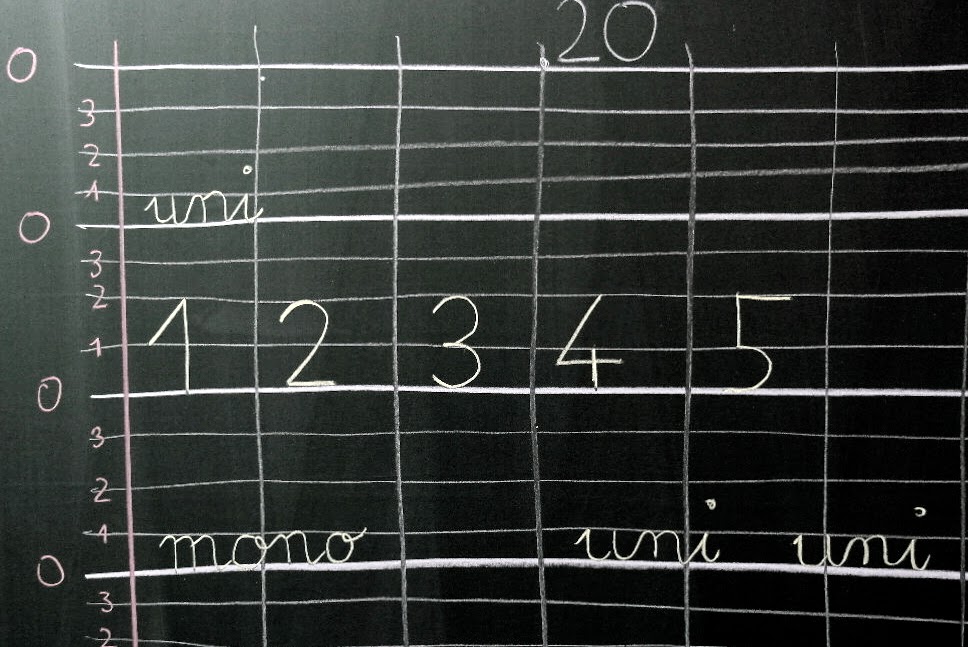 20
0
3
2
1 uni
0
3
2
1 2 3 4 5
1
0
3
2
1
mono uni uni
0
3
2